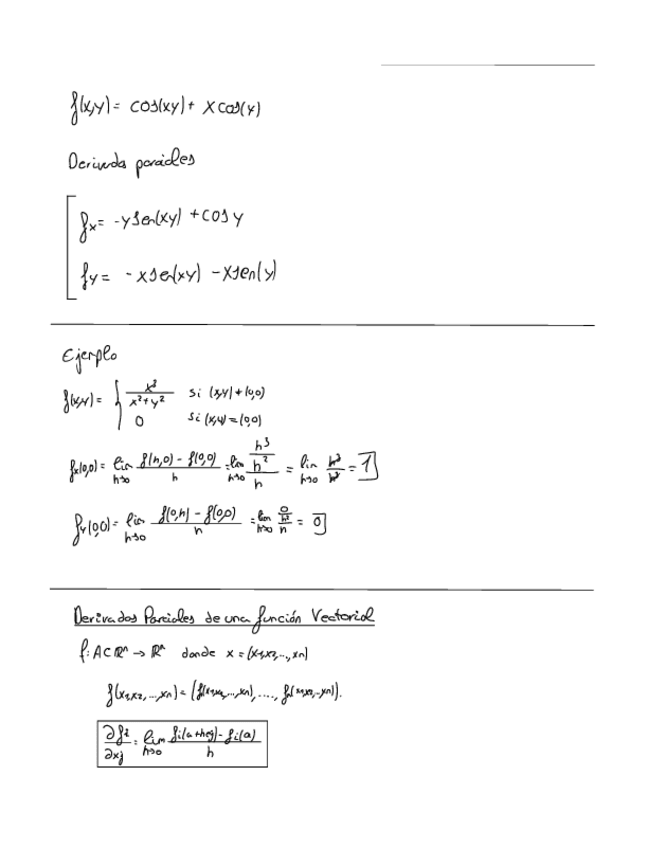 f(x,y) = cos(xy) + x cos(y)
Derivada parciales
fx = -y sen(xy) + cos y
fy = -x sen(xy) - x sen(y)
Ejemplo
f(x,y) = { x³/(x²+y²) si (x,y) ≠ (0,0)
0 si (x,y) = (0,0)
fx(0,0) = lim h→0 (f(h,0) - f(0,0))/h = lim h→0 (h³/h²)/h = lim h→0 h³/h³ = 1
fy(0,0) = lim h→0 (f(0,h) - f(0,0))/h = lim h→0 (0/h²)/h = 0
Derivadas Parciales de una función Vectorial
f: A ⊂ ℝⁿ → ℝⁿ donde x = (x1,x2,...,xn)
f(x1,x2,...,xn) = (f(x1,x2,...,xn),....,f(x1,x2,...,xn)).
∂fi/∂xj = lim h→0 (fi(a+hej) - fi(a))/h